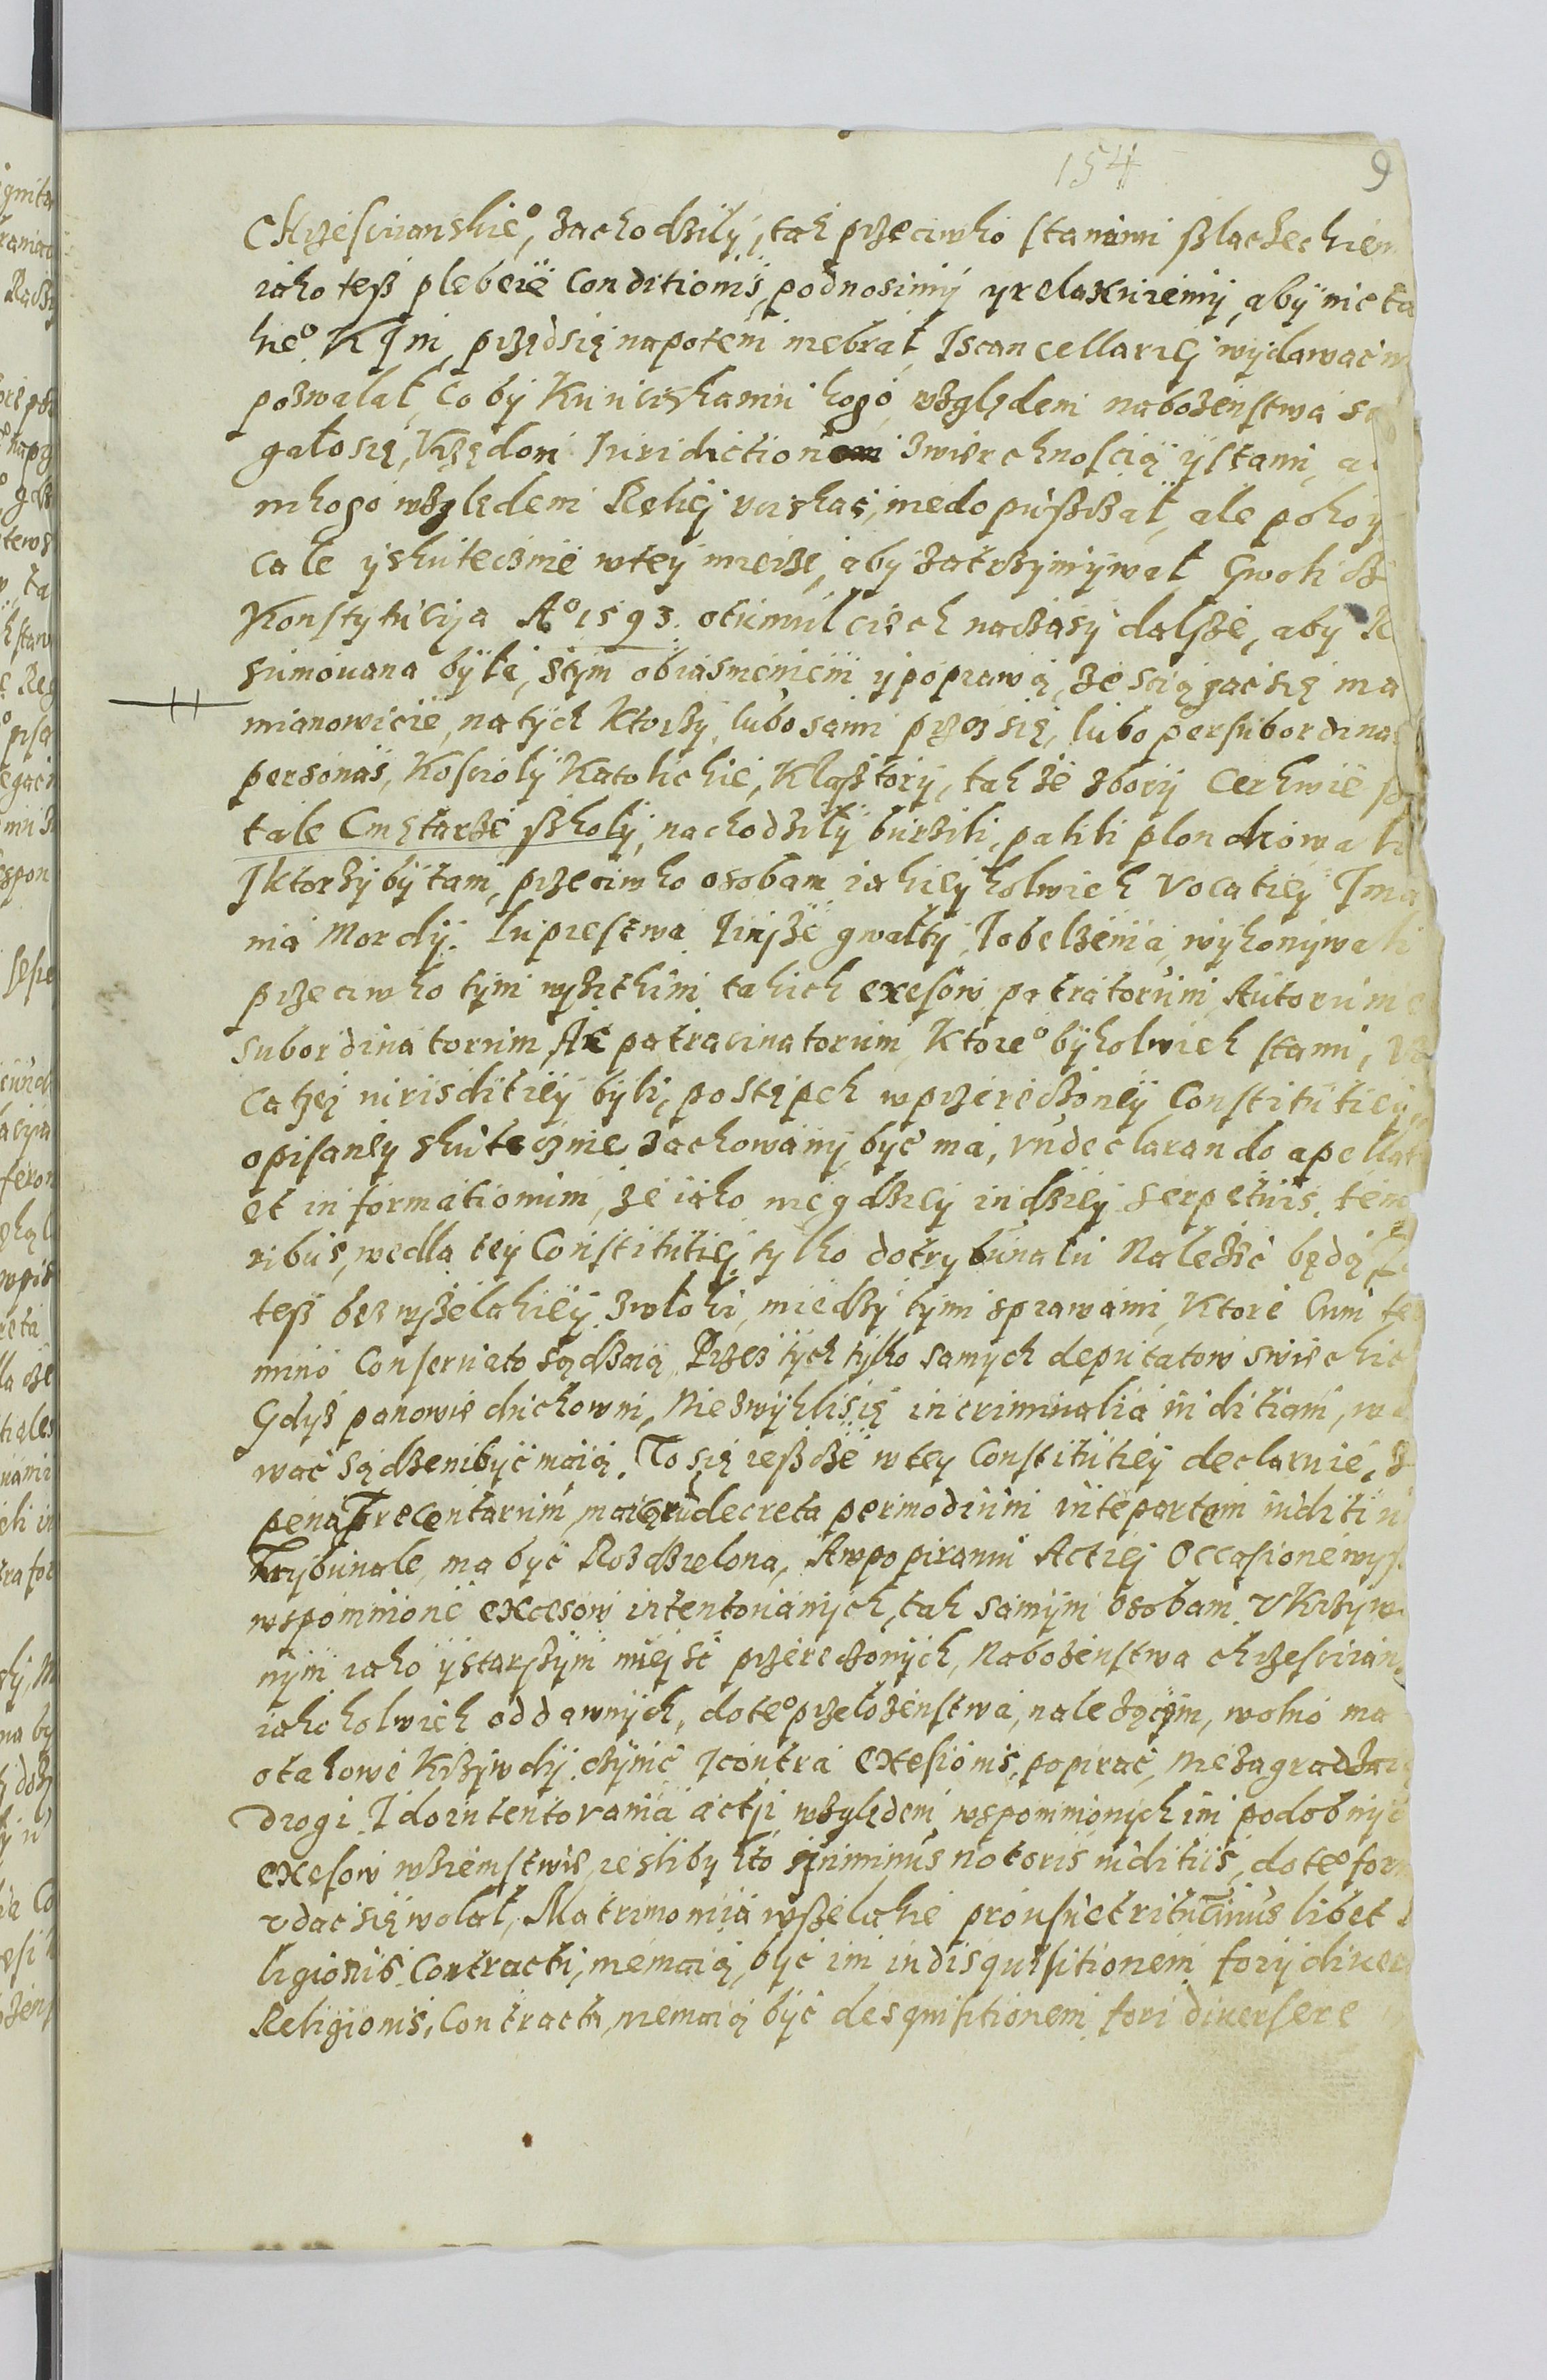 154
9
Chrzesciianskieº, zachodziły, tak przeciwko stanowi slacheckiem
iako tesz plebeie Conditionis, podnosimy y relaxuiemy, aby nic ta
kieº K J M, przedsię napotem niebrał, J s cancellariej wydawać
pozwalał, co by Ku uciskamiu kogo, względem nabozenstwa
gało się, Vrzędom Iurisdictiom zwierchnoscią y stami, a
nikogo względem Reliej uciskać, niedopuszczał, ale pokoy
cale y skutecznie w tey mierze, aby zatrzymywał Gwoli
Konstytucija Aº 1593. o tumulciech na czasy dalsze, aby Re
sumowana była, s tym obiasnieniem y poprawą, ze sciągać się ma
mianowicie, na tych Ktorzy, lubo sami przez się, lubo per subordinas
personas, Koscioly Katolickie, Klasztory, takze zbory Cerkwie
tale Cmętarze szkoły, nachodzily burzili, palili plondrowali
J ktorzy by tam, przeciwko osobam iakiey kolwiek Vocatiey
nia Mordy. Lupiestwa J insze gwałty, J obelzenia, wykonywali
przeciwko tym wszitkim takich exesow patratorum, Autorum
subordinatorum Ac patracinatorum, Ktoreº by kolwiek stanu,
 iurisditiey byli, postępek w przereczoney Constitutiey
opisaney skutecznie zachowany być ma, vn declarando apellat
et informationum, ze iako nie gdziey indziey serpetuis tem
ribus, wedla tey Constitutiej, tylko do trybunalu Nalezeć będą
tesz bez wszelakiey zwłoki, miedzy tymi sprawami, Ktore Cum ter
mino Conseruato sądzaią, Przez tych tylko samych deputatow swieckich
Gdysz panowie duchowni, Nie zwykli się in criminalia iuditiam,
wać sądzeni być maią. To się ieszcze w tey Constitutiey declaruie,
pena Trecentarum, maiąc decreta per modum inte partem iuditiu
Trybunale, ma być Rozdzielona, A w popiraniu Actiej Occasione wysz
wspomnione excesow intentowanych, tak samym osobam Vkrzyw
nym iako y starszym miejsc przereczonych, Nabozenstwa chrzesciian
iako kolwiek oddawnych, do teº przelozenstwa, nalezącym, wolno ma
o takowe Krzywdy czynic J contra exesiones, popirać, nie zagradzaią
drogi J do intentowania actji względem wspomnionych im podobnych
exesow w ziemstwie, iesliby kto in minus notoris iuditiis, do teº for
udać się wolał, Matrimonia wszelakie pro usu et ritu cuius libet
ligionis Contracti, niemaią, być im in disquisitionem fory diuer
Religionis, Contracta, niemaią być desquisitionem fori diuersere